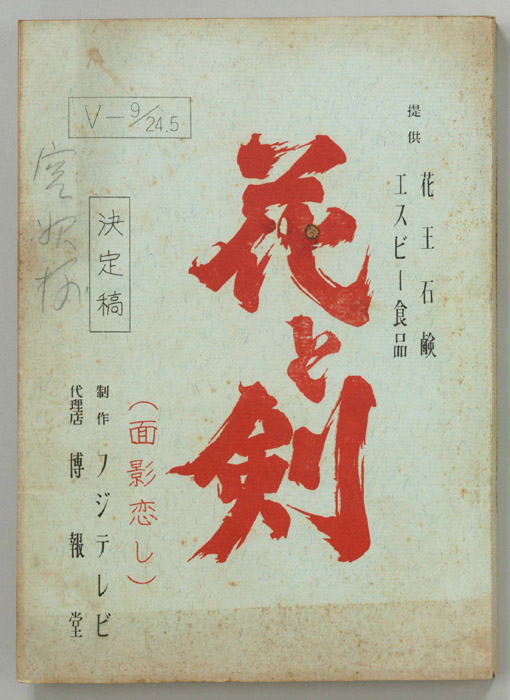 提供
花王石鹸
エスビー食品
花と剣
(面影恋し)
制作 フジテレビ
代理店 博報堂
決定稿
V-9/24.5